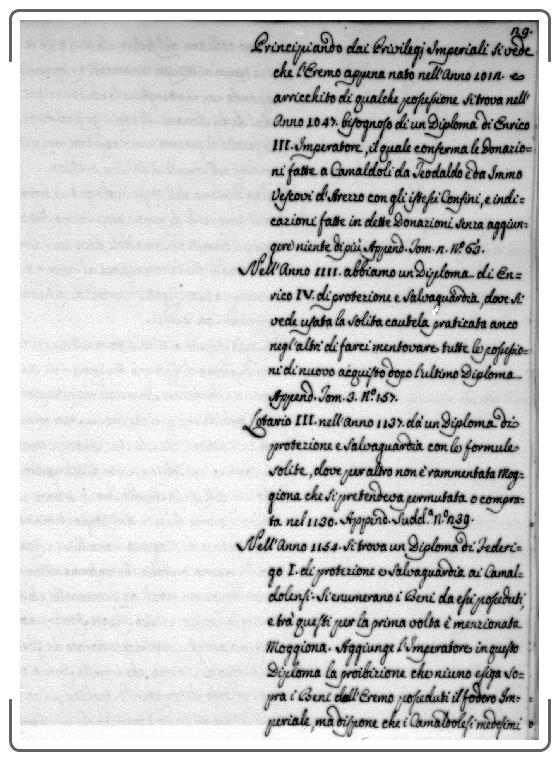 29.
Principiando dai Privilegj Imperiali si vede
che l'Eremo appena nato nell'Anno 1012. e
arricchito di qualche possessione si trova nell'
Anno 1047. bisognoso di un Diploma di Enrico
III. Imperatore, il quale conferma le Donazio=
ni fatte a Camaldoli da Teodaldo e da Immo
Vescovi d'Arezzo con gli istessi Confini, e indi=
cazioni fatte in dette Donazioni senza aggiun=
gere niente di più Append. Tom. 2. N.o 63.
Nell'Anno 1111. abbiamo un Diploma di En=
rico IV. di protezione e Salvaguardia, dove si
vede usata la solita cautela praticata anco
negl'altri di farci mentovare tutte le possessio=
ni di nuovo acquisto dopo l'ultimo Diploma
Append. Tom. 3. N.o 157.
Lotario III. nell'Anno 1137. dà un Diploma di
protezione e Salvaguardia con le formule
solite, dove per altro non è rammentata Mog=
giona che si pretendeva permutata o compra=
ta nel 1130. Append. Sudd.a N.o 239.
Nell'Anno 1154. si trova un Diploma di Federi=
go I. di protezione e Salvaguardia ai Camal=
dolensi. Si enumerano i Beni da essi posseduti,
e trà questi per la prima volta è menzionata
Moggiona. Aggiunge l'Imperatore in questo
Diploma la proibizione che niuno esiga so=
pra i Beni dell'Eremo posseduti il fodero Im=
periale, ma dispone che i Camaldolesi medesimi